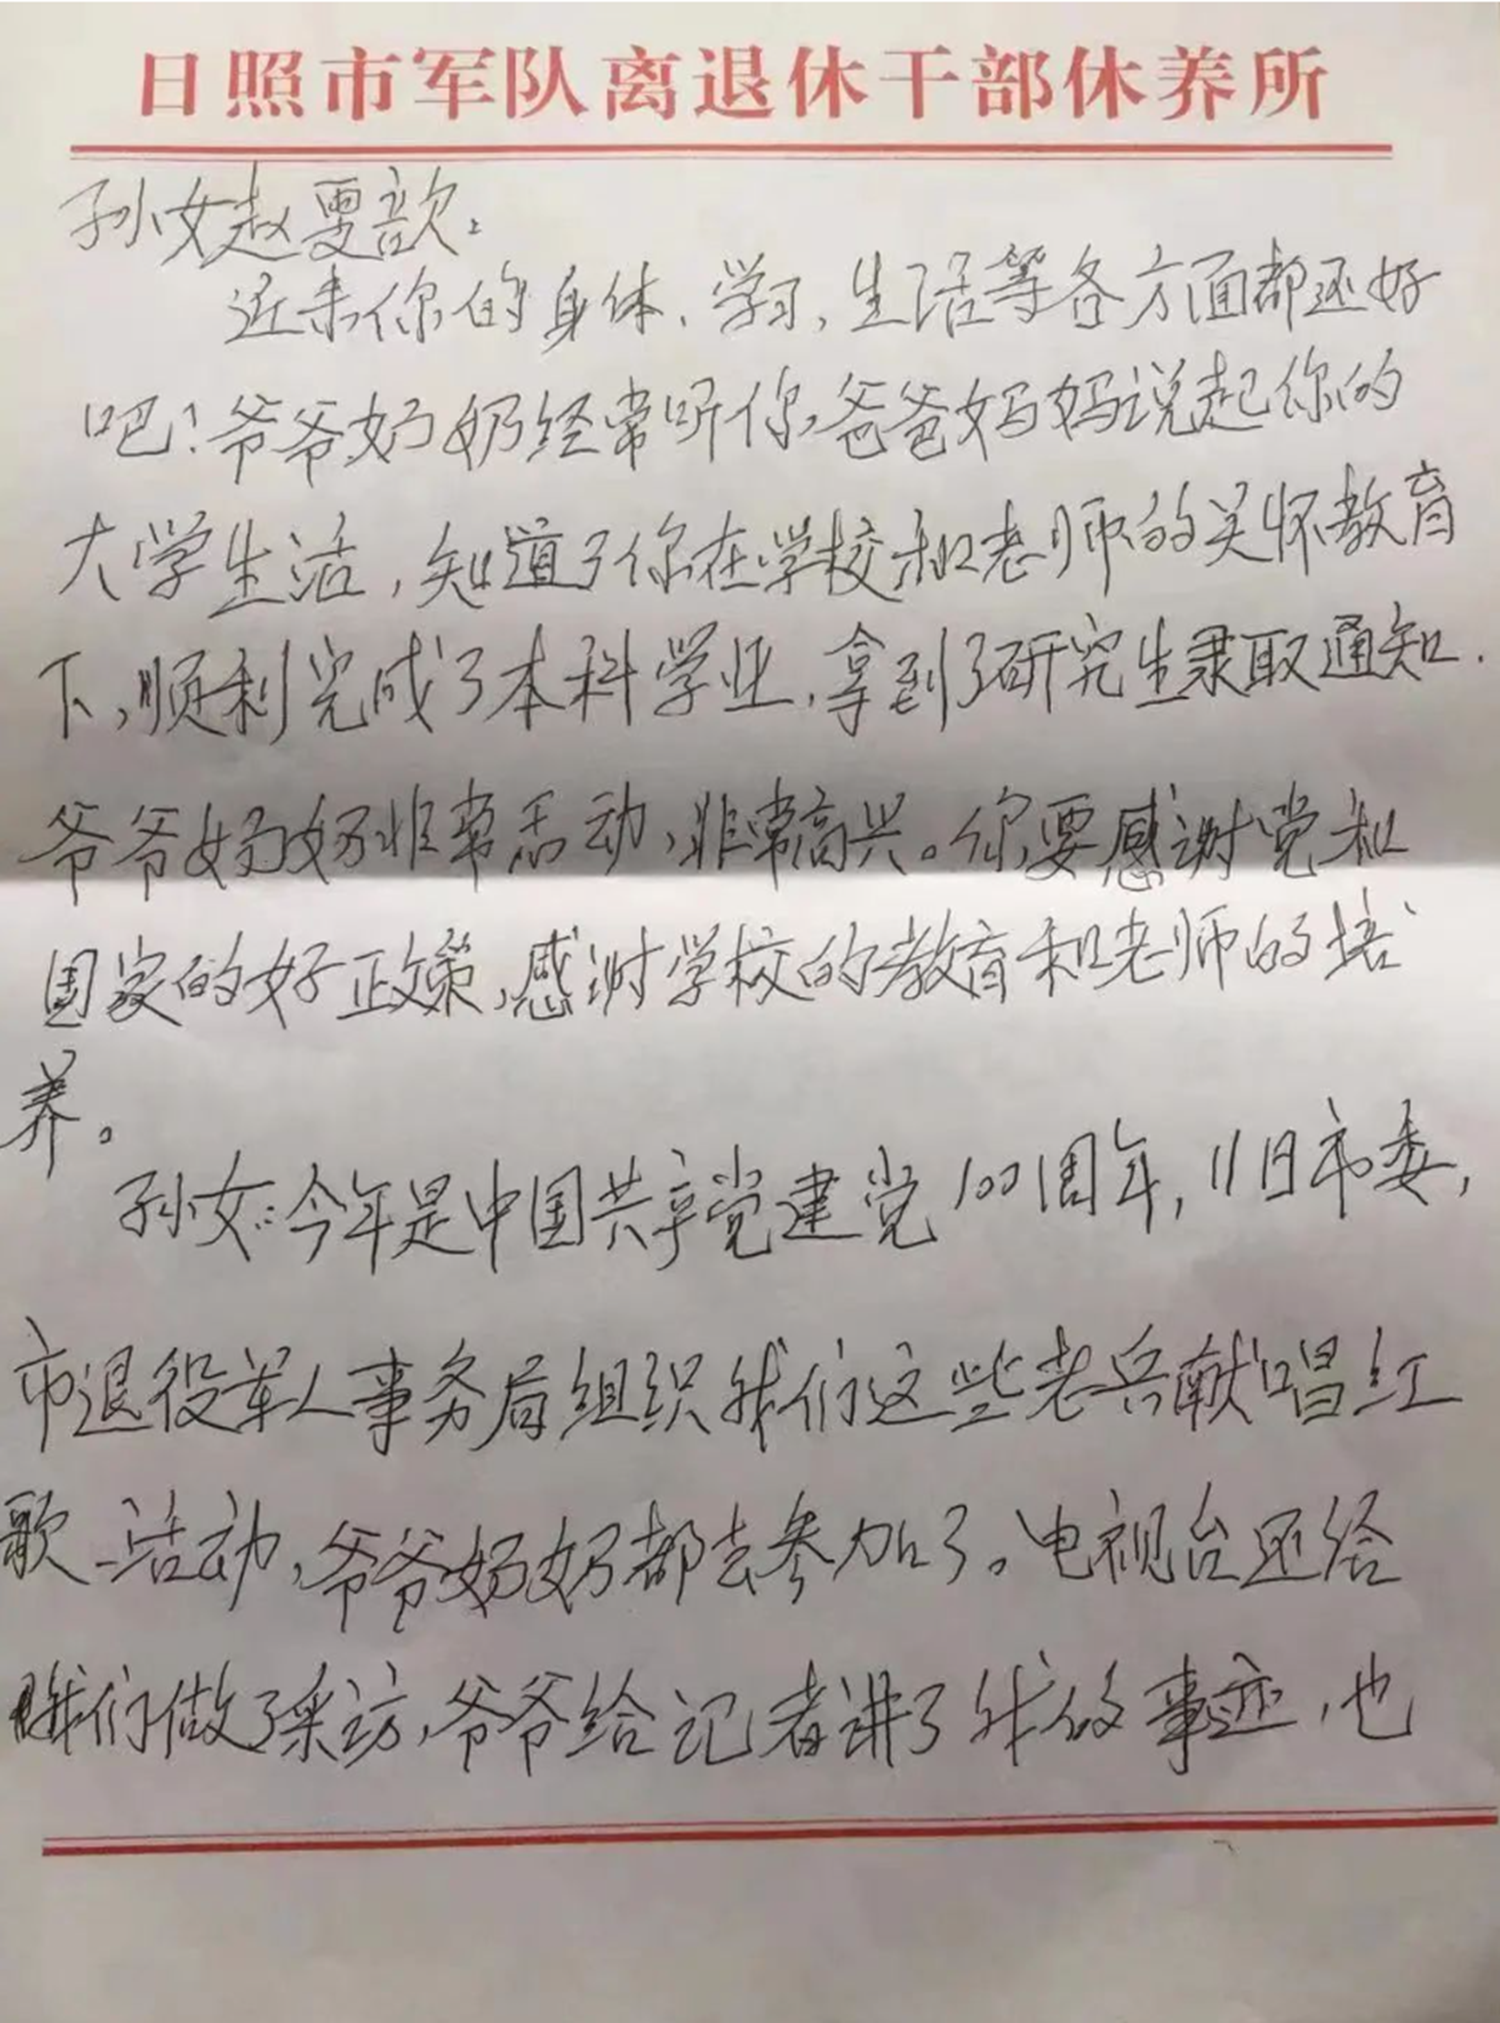 日照市军队离退休干部休养所
孙女赵雯歆：
近来你的身体、学习，生活等各方面都还好
吧！爷爷奶奶经常听你爸爸妈妈说起你的
大学生活，知道了你在学校和老师的关怀教育
下，顺利完成了本科学业，拿到了研究生录取通知.
爷爷奶奶非常活动，非常高兴。你要感谢党和
国家的好政策，感谢学校的教育和老师的培
养。
孙女：今年是中国共享党建党100周年，11日市委，
市退役军人事务局组织我们这些老兵献唱红
歌活动，爷爷奶奶都去参加了。电视台还给
我们做了采访，爷爷给记者讲了我的事迹，也